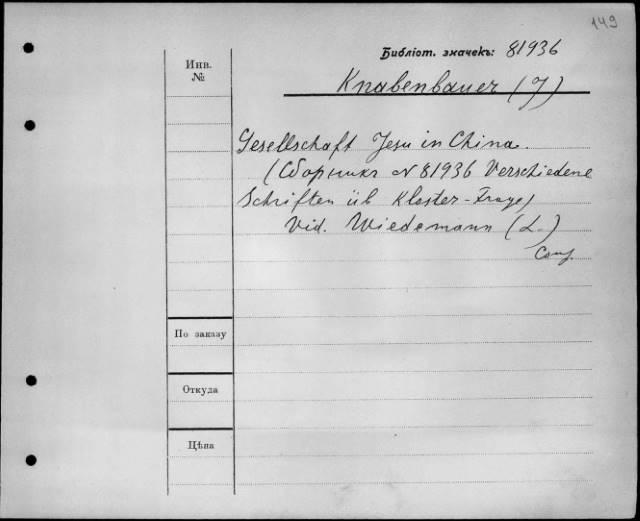 149
Библіот. значекъ: 81936
Инв.
№
Knabenbauer (J)
Gesellschaft Jesu in China.
(Сборникъ № 81936 Verschiedene
Schriften üb Kloster-Frage)
Vid. Wiedemann (L.)
По заказу
Откуда
Цѣна